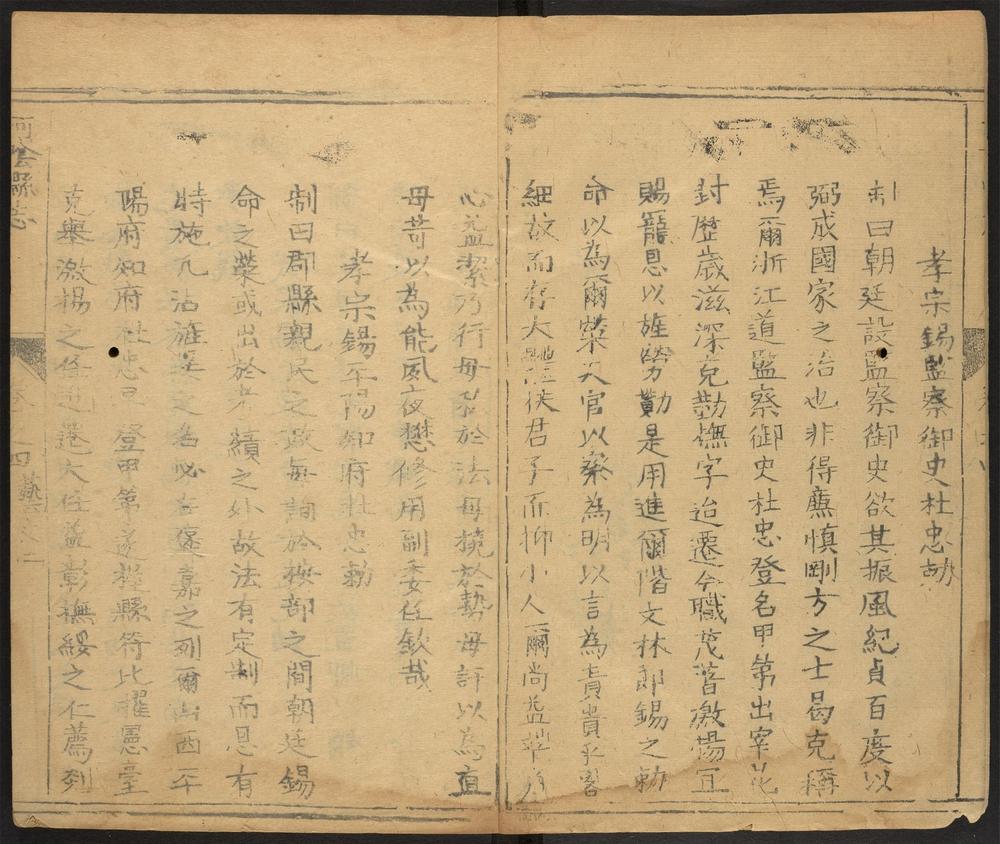 孝宗錫監察御史杜忠勅
制曰朝廷設監察御史欲其振風紀貞百度以
弼成國家之治也非得廉慎剛方之士曷克稱
焉爾浙江道監察御史杜忠登名甲第出宰花
封歷歲滋深克勤撫字迨遷今職茂著激揚宜
賜寵恩以旌勞勩是用進爾階文林郎錫之勅
命以為爾榮夫官以察為明以言為責貴乎畧
細故而存大體扶君子而抑小人爾尚益
心益潔乃行毋私於法毋撓於勢毋訐以為直
毋苛以為能夙夜懋修用副委任欽哉
孝宗錫平陽知府杜忠勅
制曰郡縣親民之政每詢於按部之間朝廷錫
命之榮或出於考績之外故法有定制而恩有
特施凡沾旌之名必在褒嘉之列爾山西平
陽府知府杜忠登甲第遂縣符比擢憲臺
克舉激揚之任大任益彰撫綏之仁薦列
河陰縣志
卷之四 藝文 二